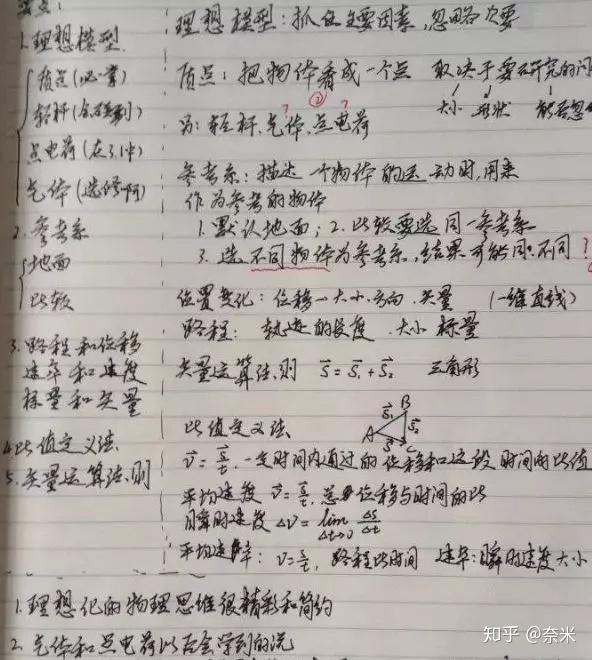 要点：
1.理想模型
质点(必一掌)
轻杆(会碰到)
点电荷(在3.1中)
气体(选修啊)
2.参考系
地面
比较
3.路程和位移
速率和速度
标量和矢量
4.比值定义法
5.矢量运算法则
理想模型：抓住主要因素，忽略次要
质点：把物体看成一个点 取决于要研究的问
大小 形状 能否忽
②
? ?
轻杆、气体、点电荷
参考系：描述一个物体的运动时，用来
作为参考的物体
1.默认地面；2.比较要选同一参考系
3.选不同物体为参考系，结果可能同.不同?
位置变化：位移—大小.方向.矢量 (一维直线)
路程：轨迹的长度.大小 标量
矢量运算法则 s⃗=s⃗₁+s⃗₂ 三角形
A B C s⃗₁ s⃗₂ s⃗
比值定义法
v⃗=s⃗/t.一定时间内通过的位移和这段时间的比值
平均速度 v⃗=s⃗/t.总位移与时间的比
瞬时速度 ΔV=lim Δt→0 Δs/Δt
平均速率：v=s/t，路程比时间 速率：瞬时速度大小
1.理想化的物理思维很精彩和简约
2.气体和点电荷以后会学到的流
知乎 @奈米